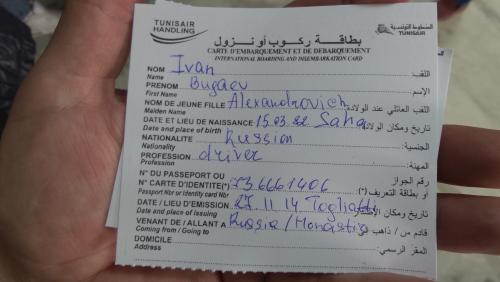 TUNISAIR
HANDLING
الخطوط التونسية
TUNISAIR
بطاقة ركوب أو نزول
CARTE D'EMBARQUEMENT ET DE DEBARQUEMENT
INTERNATIONAL BOARDING AND DISEMBARKATION CARD
NOM Ivan اللقب:
Name
PRENOM Bugaev الإسم:
First Name
NOM DE JEUNE FILLE Alexandrovich اللقب العائلي عند الولادة
Maiden Name
DATE ET LIEU DE NAISSANCE 15.03.82 تاريخ ومكان الولادة
Date and place of birth
NATIONALITE Russian الجنسية:
Nationality
PROFESSION driver المهنة:
Profession
N° DU PASSEPORT OU رقم الجواز
N° CARTE D'IDENTITE(*) 73.6661406 أو بطاقة التعريف (*):
Passport Nbr or Identity card Nbr
DATE / LIEU D'EMISSION 27.11.14 Togliatti تاريخ ومكان
Date and place of issuing
VENANT DE / ALLANT A Russia / Monastir قادم من / ذاهب
Coming from / Going to
DOMICILE المقر الرسمي:
Address